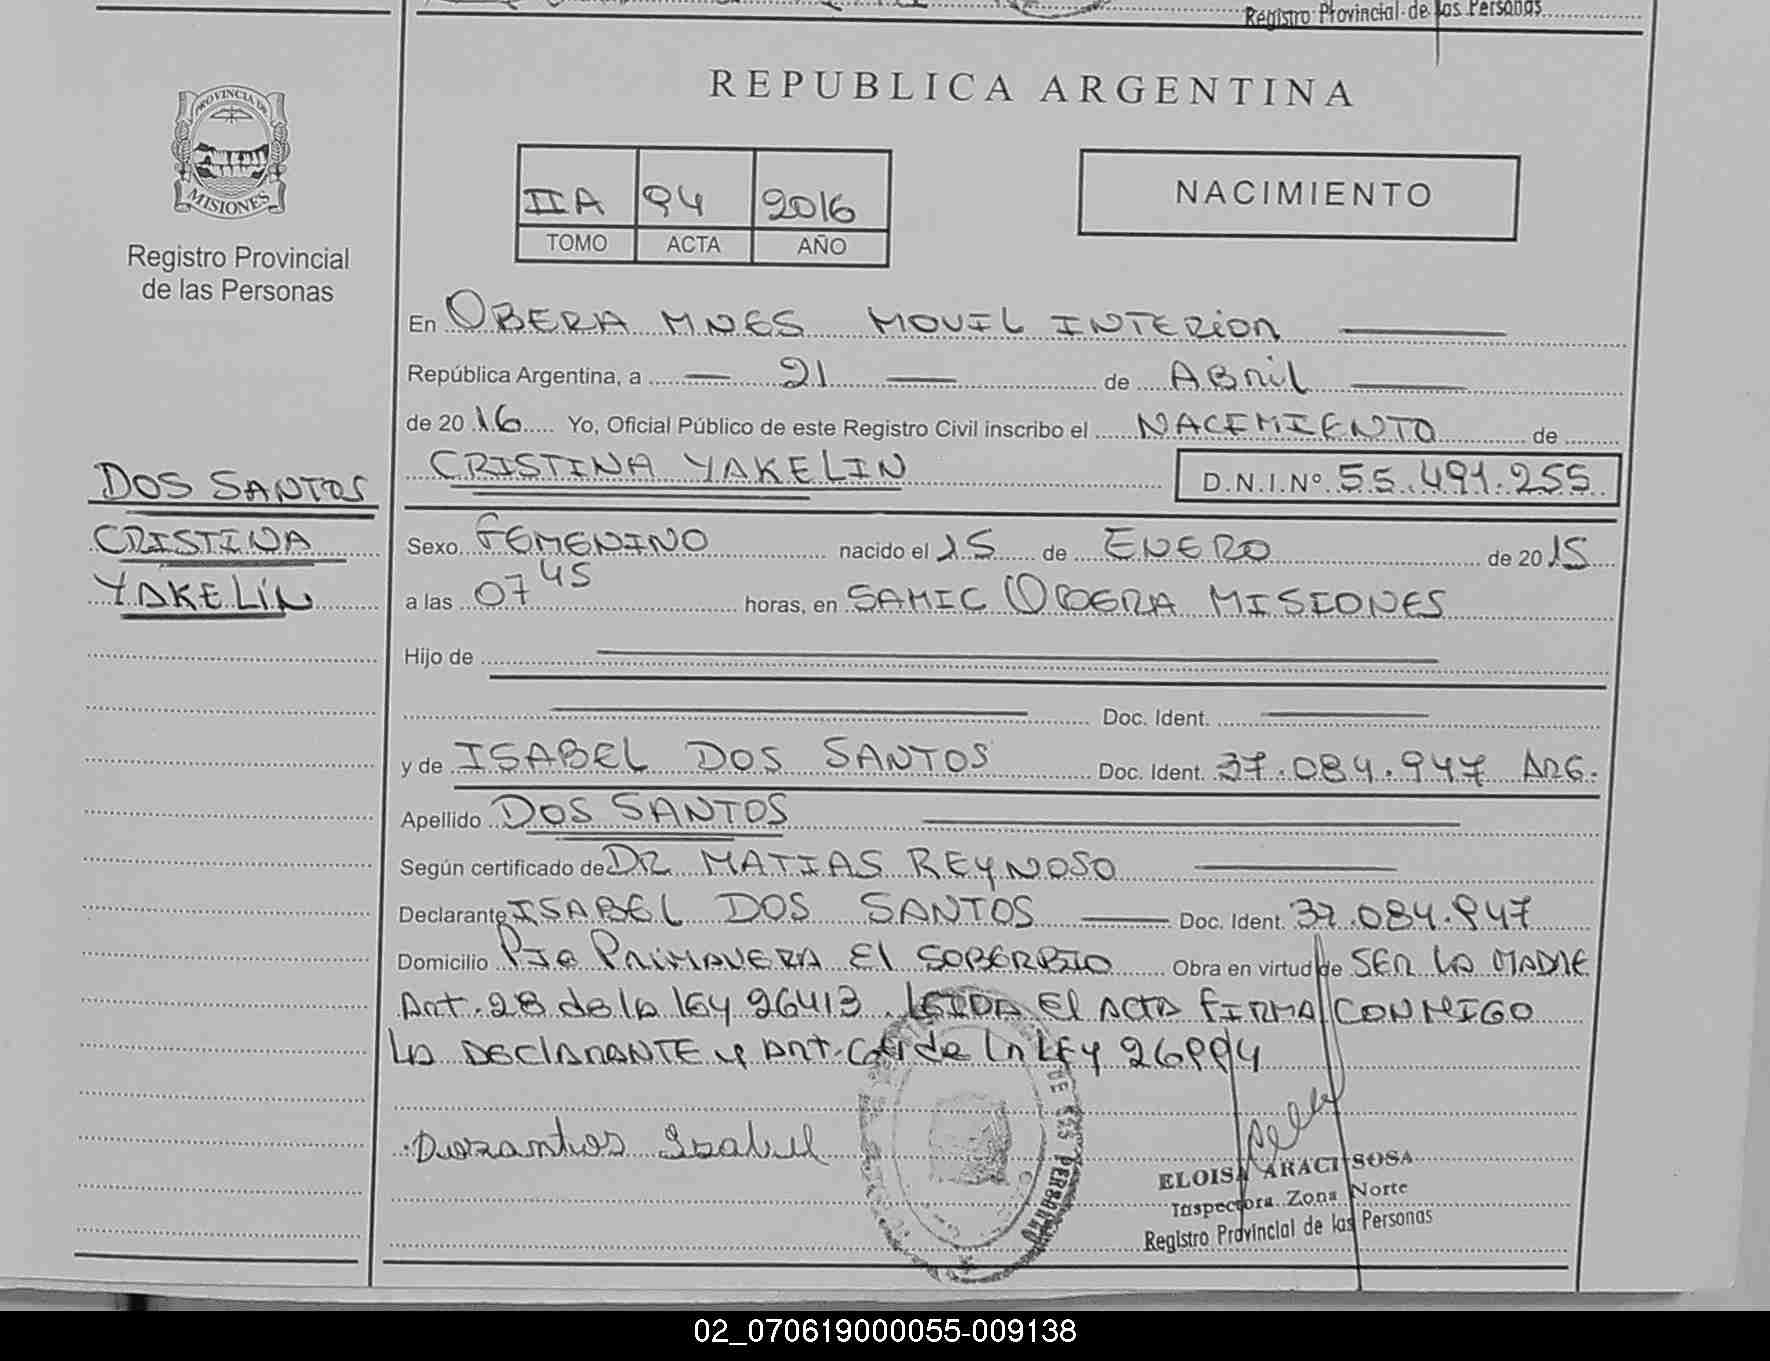 Registro Provincial de las Personas
PROVINCIA DE
MISIONES
Registro Provincial
de las Personas
REPUBLICA ARGENTINA
IIA 94 2016
TOMO ACTA AÑO
NACIMIENTO
En OBERA MNES MOVIL INTERIOR
República Argentina, a 21 de ABRIL
de 2016 Yo, Oficial Público de este Registro Civil inscribo el NACIMIENTO de
CRISTINA YAKELIN D.N.I.Nº 55.491.255
DOS SANTOS
CRISTINA
YAKELIN
Sexo FEMENINO nacido el 15 de ENERO de 2015
a las 07 45 horas, en SAMIC OBERA MISIONES
Hijo de
Doc. Ident.
y de ISABEL DOS SANTOS Doc. Ident. 37.084.947 ARG.
Apellido DOS SANTOS
Según certificado de DR MATIAS REYNOSO
Declarante ISABEL DOS SANTOS Doc. Ident. 37.084.947
Domicilio PJE PRIMAVERA El SOBERBIO Obra en virtud de SER LA MADRE
Art. 28 de la lEy 26413. LEIDA El ACTA FIRMA CONMIGO
LA DEClARANTE y Art. de la LEy 26994
Dozantos Isabel
DE LAS PERSONAS
ELOISA ARACI SOSA
Inspectora Zona Norte
Registro Provincial de las Personas
02_070619000055-009138